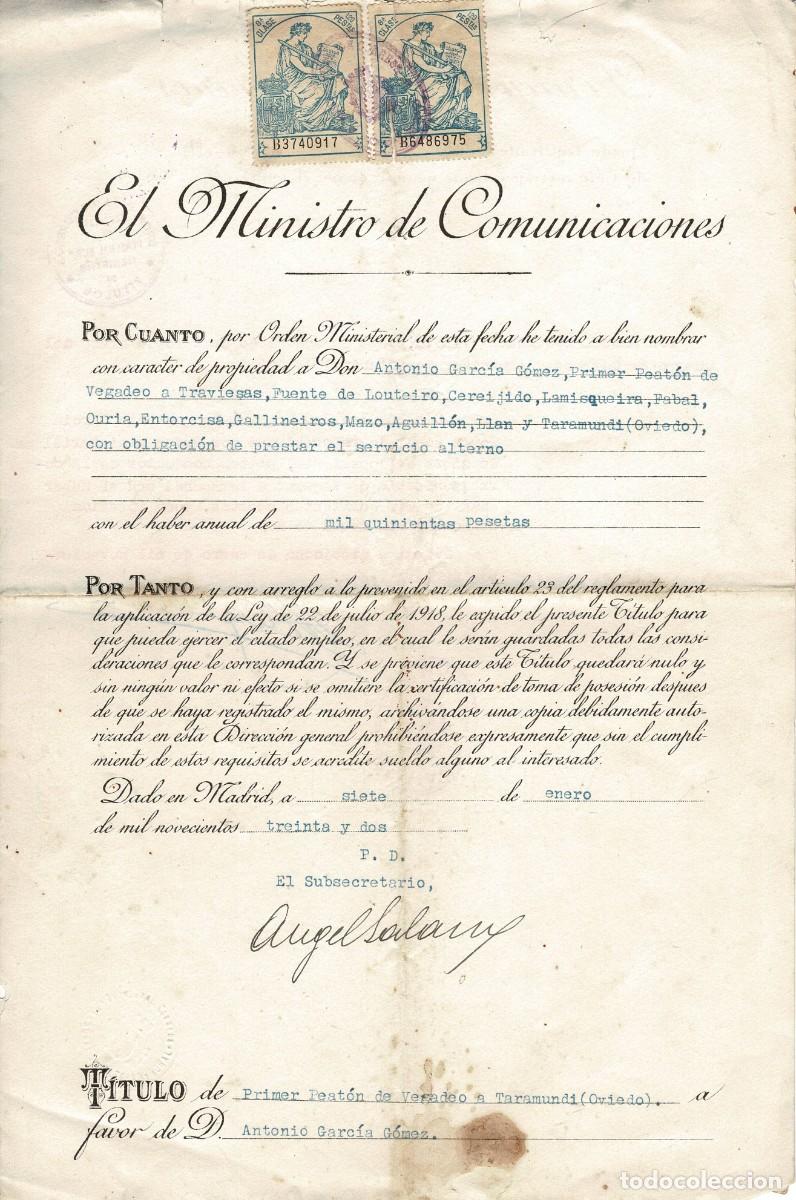 8ª CLASE
120 PESETAS
B3740917
8ª CLASE
120 PESETAS
B6486975
El Ministro de Comunicaciones
POR CUANTO, por Orden Ministerial de esta fecha he tenido a bien nombrar
con caracter de propiedad a Don Antonio García Gómez,Primer Peatón de
Vegadeo a Traviesas,Fuente de Louteiro,Cereijido,Lamisqueira,Fabal,
Ouria,Entorcisa,Gallineiros,Mazo,Aguillón,Llan y Taramundi(Oviedo),
con obligación de prestar el servicio alterno
con el haber anual de mil quinientas pesetas
POR TANTO, y con arreglo á lo prevenido en el artículo 23 del reglamento para
la aplicación de la Ley de 22 de julio de 1918, le expido el presente Título para
que pueda ejercer el citado empleo, en el cual le serán guardadas todas las consi-
deraciones que le correspondan. Y se previene que este Título quedará nulo y
sin ningún valor ni efecto si se omitiere la certificación de toma de posesión despues
de que se haya registrado el mismo, archivándose una copia debidamente auto-
rizada en esta Dirección general prohibiéndose expresamente que sin el cumpli-
miento de estos requisitos se acredite sueldo alguno al interesado.
Dado en Madrid, a siete de enero
de mil novecientos treinta y dos
P. D.
El Subsecretario,
Angel Galarza
TÍTULO de Primer Peatón de Vegadeo a Taramundi(Oviedo). a
favor de D. Antonio García Gómez.
todocoleccion